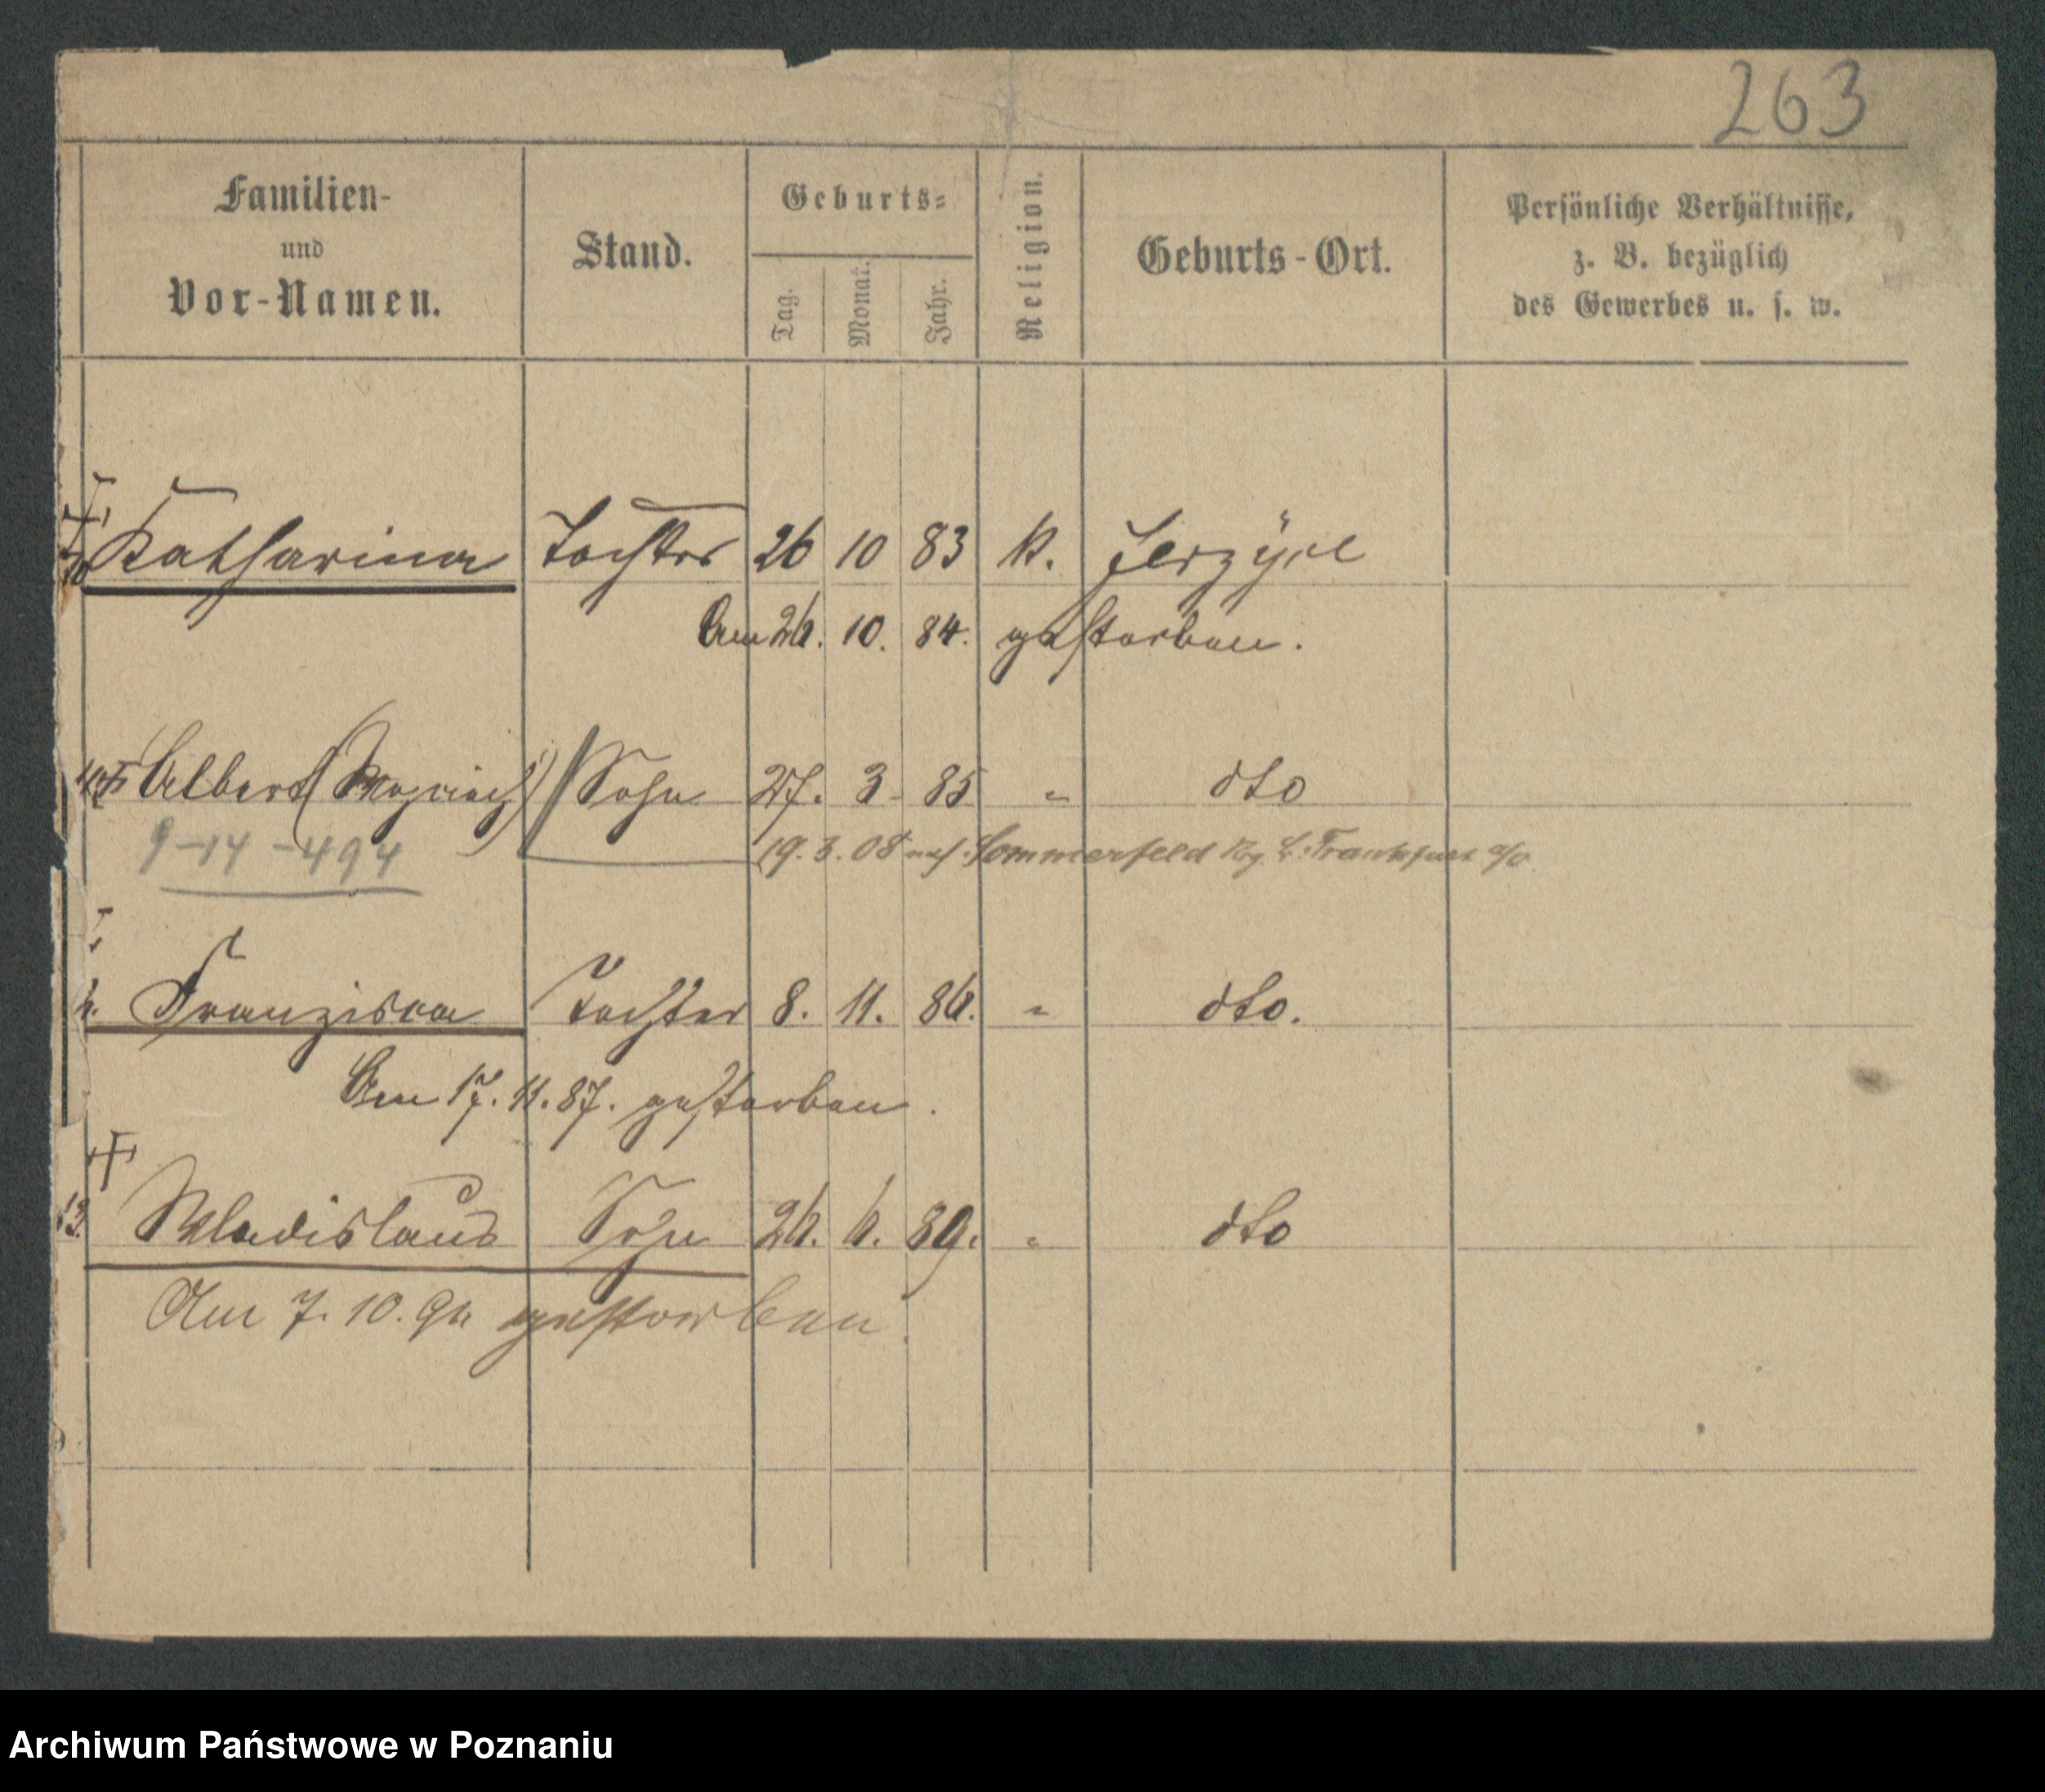 263
Familien-
und
Vor-Namen.
Stand.
Geburts-
Tag.
Monat.
Jahr.
Religion.
Geburts-Ort.
Persönliche Verhältnisse,
z. B. bezüglich
des Gewerbes u. s. w.
10 Katharina Tochter 26 10 83 K.
Am 26. 10. 84. gestorben.
11 Albert Sohn 27. 3 85 " dto
9-14-494
19. 3. 08 nach Sommerfeld Frankfurt a/o
Franziska Tochter 8. 11. 86. " dto.
Am 17. 11. 87. gestorben.
13. Wladislaus Sohn 26. 6. 89. " dto
Am 7. 10. 96 gestorben.
Archiwum Państwowe w Poznaniu